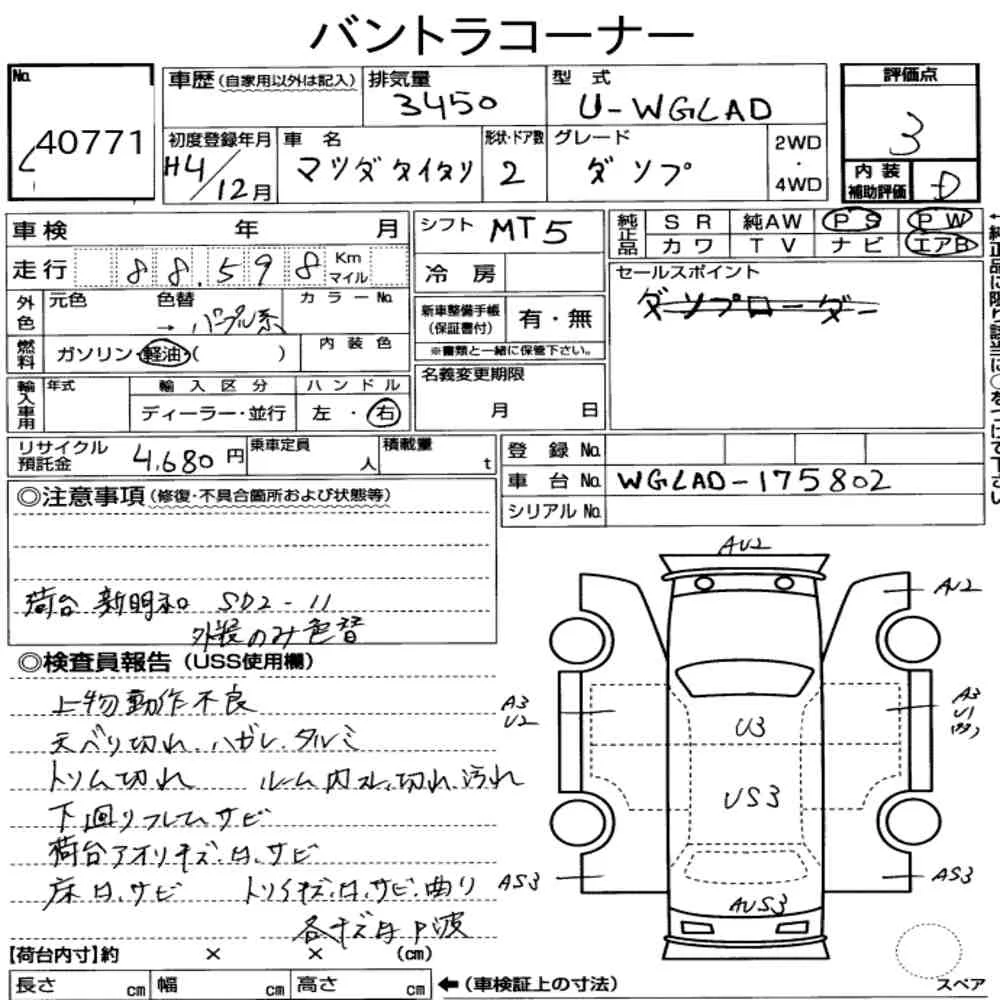 バントラコーナー
No. 40771
車歴 (自家用以外は記入)
排気量 3450
型式 U-WGLAD
評価点 3
初度登録年月 H4/12月
車名 マツダタイタン
形状・ドア数 2
グレード ダンプ
2WD ・ 4WD
内装補助評価 D
車検 年 月
シフト MT5
純正品 SR 純AW PS PW
カワ TV ナビ エアB
走行 88,598 Km マイル
冷房
セールスポイント
ダンプローダー
外色 元色 色替 → パープル系 カラーNo.
新車整備手帳(保証書付) 有・無
※書類と一緒に保管下さい。
燃料 ガソリン・軽油・( ) 内装色
名義変更期限 月 日
輸入車用 年式 輸入区分 ハンドル
ディーラー・並行 左・右
リサイクル預託金 4,680円 乗車定員 人 積載量 t
登録No.
車台No. WGLAD-175802
シリアルNo.
◎注意事項 (修復・不具合箇所および状態等)
荷台 新明和 SD2-11
外装のみ色替
◎検査員報告 (USS使用欄)
上物動作不良
天ベリ切れ、ハガレ、タルミ
トリム切れ ルーム内スレ、切れ、汚れ
下回りフレームサビ
荷台アオリキズ、凹、サビ
床凹、サビ トリイキズ、凹、サビ、曲り
各キズ凹P波
AU2
AU2
A3 U2
A3 U1
U3
US3
AS3
AS3
AUS3
【荷台内寸】約 × × (cm)
長さ cm 幅 cm 高さ cm ←(車検証上の寸法)
スペア